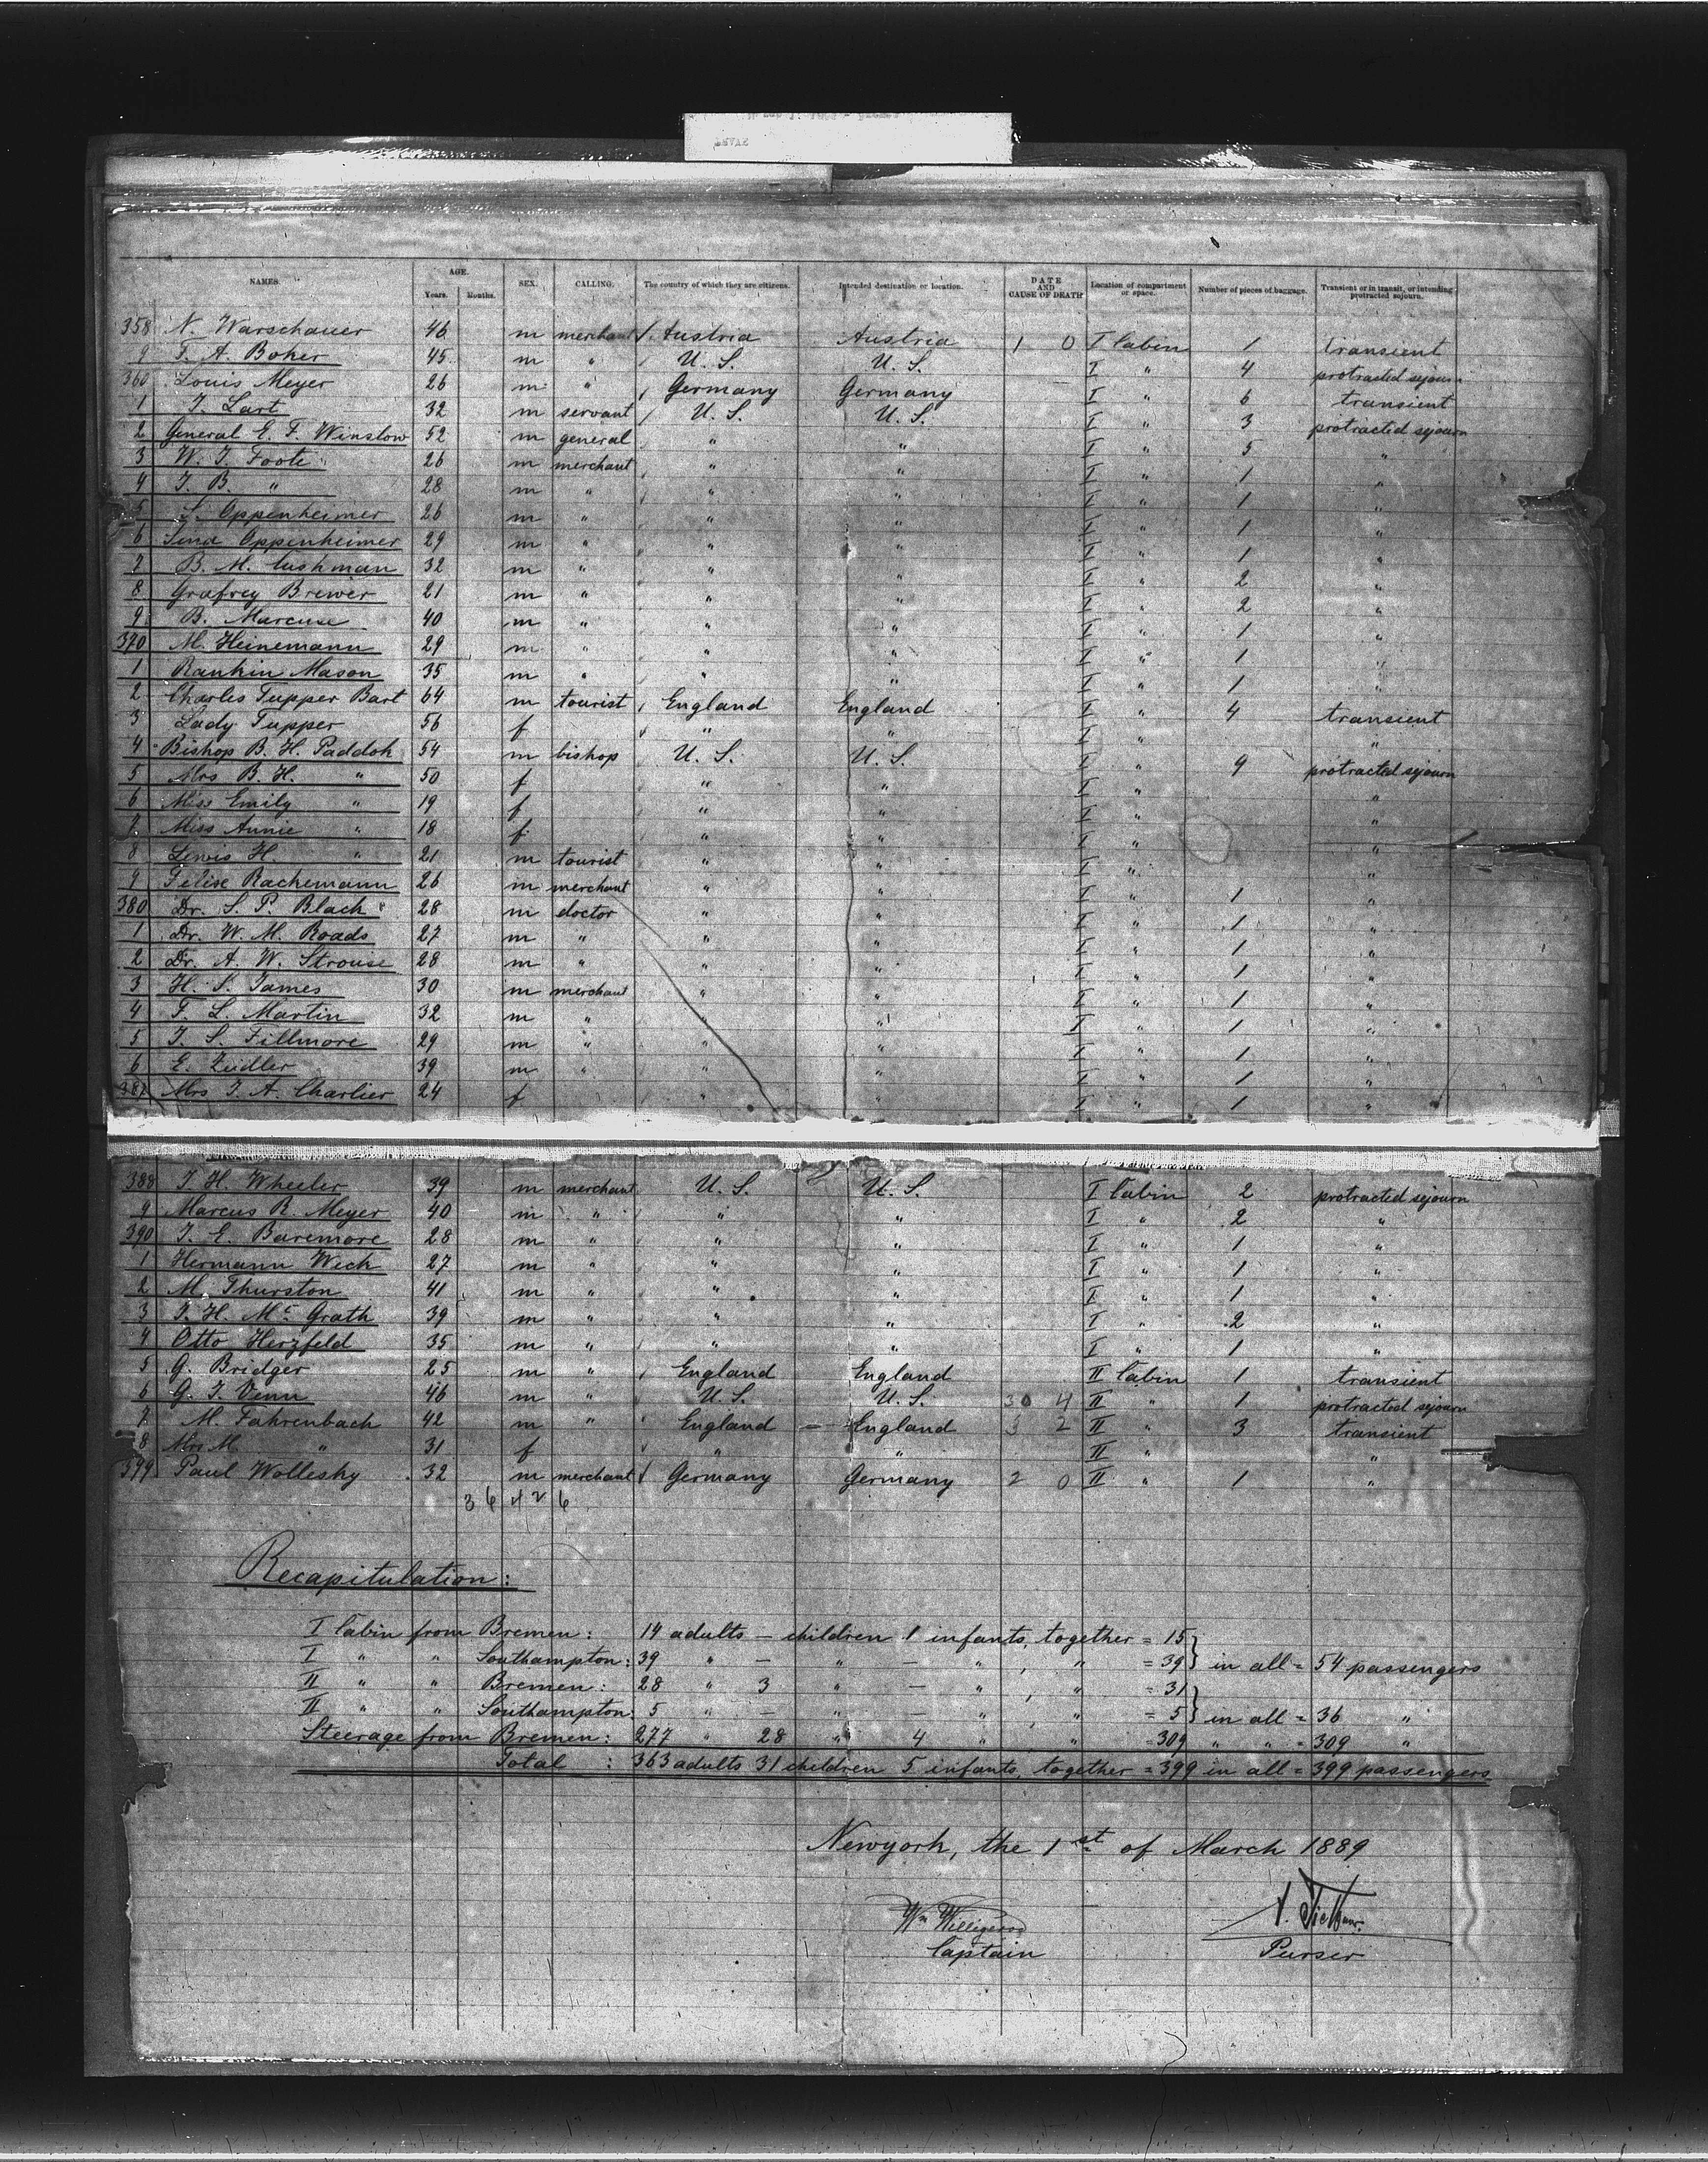 NAMES. AGE. Years. Months. SEX. CALLING. The country of which they are citizens. Intended destination or location. DATE AND CAUSE OF DEATH Location of compartment or space. Number of pieces of baggage. Transient or in transit, or intending protracted sejourn.
358 N. Warschauer 46 m merchant Austria Austria 1 0 I Cabin 1 transient
9 F. A. Boker 45 m " U. S. U. S. I " 4 protracted sejourn
360 Louis Meyer 26 m " Germany Germany I " 6 transient
1 J. Lart 32 m servant U. S. U. S. I " 3 protracted sejourn
2 General E. F. Winslow 52 m general " " I " 5 "
3 W. J. Foote 26 m merchant " " I " 1 "
4 J. B. " 28 m " " " I " 1 "
5 S. Oppenheimer 26 m " " " I " 1 "
6 Oppenheimer 29 m " " " I " 1 "
7 B. M. Cushman 32 m " " " I " 2 "
8 Grafrey Brewer 21 m " " " I " 2 "
9 B. Marcuse 40 m " " " I " 1 "
370 M. Heinemann 29 m " " " I " 1 "
1 Rankin Mason 35 m " " " I " 1 "
2 Charles Tupper Bart 64 m tourist England England I " 4 transient
3 Lady Tupper 56 f " " I " "
4 Bishop B. H. Paddok 54 m bishop U. S. U. S. I " 9 protracted sejourn
5 Mrs B. H. " 50 f " " I " "
6 Miss Emily " 19 f " " I " "
7 Miss Annie " 18 f " " I " "
8 Lewis H. " 21 m tourist " " I " "
9 Felise Rachemann 26 m merchant " " I " 1 "
380 Dr. S. P. Black 28 m doctor " " I " 1 "
1 Dr. W. M. Roads 27 m " " " I " 1 "
2 Dr. A. W. Strouse 28 m " " " I " 1 "
3 H. S. James 30 m merchant " " I " 1 "
4 F. L. Martin 32 m " " " I " 1 "
5 J. S. Fillmore 29 m " " " I " 1 "
6 E. Zeidler 39 m " " " I " 1 "
387 Mrs J. A. Charlier 24 f " " I " 1 "
388 J. H. Wheeler 39 m merchant U. S. U. S. I Cabin 2 protracted sejourn
9 Marcus R. Meyer 40 m " " " I " 2 "
390 J. E. Baremore 28 m " " " I " 1 "
1 Hermann Weck 27 m " " " I " 1 "
2 M. Thurston 41 m " " " I " 1 "
3 J. H. Mc Grath 39 m " " " I " 2 "
4 Otto Herzfeld 35 m " " " I " 1 "
5 G. Bridger 25 m " England England II Cabin 1 transient
6 G. J. Venn 46 m " U. S. U. S. 30 4 II " 1 protracted sejourn
7 M. Fahrenbach 42 m " England England 3 2 II " 3 transient
8 Mrs M. " 31 f " " II " "
399 Paul Wollesky 32 m merchant Germany Germany 2 0 II " 1 "
36 42 6
Recapitulation:
I Cabin from Bremen: 14 adults – children 1 infants, together = 15
I " " Southampton: 39 " – " – " , " = 39 } in all = 54 passengers
II " " Bremen: 28 " 3 " – " , " = 31
II " " Southampton: 5 " – " – " , " = 5 } in all = 36 "
Steerage from Bremen: 277 " 28 " 4 " , " = 309 " " = 309 "
Total : 363 adults 31 children 5 infants, together = 399 in all = 399 passengers
Newyork, the 1st of March 1889
Wm Willigerod
Captain
Purser